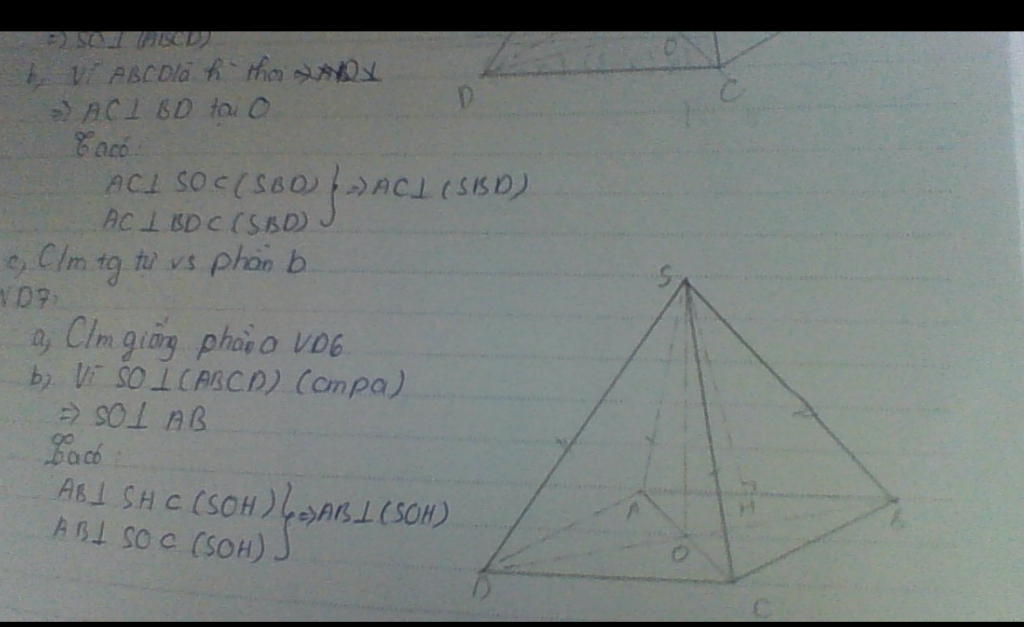 => SO⊥(ABCD)
b, Vì ABCD là h thoi =>
=> AC⊥ BD tại O
Ta có:
AC⊥ SO⊂(SBD) } => AC⊥(SBD)
AC⊥ BD⊂(SBD)
c, C/m tg tự vs phần b
VD7:
a, C/m giống phần a VD6
b, Vì SO⊥(ABCD) (cmpa)
=> SO⊥ AB
Ta có:
AB⊥ SH⊂(SOH) } => AB⊥(SOH)
AB⊥ SO⊂(SOH)
O
D
C
S
A
H
B
O
D
C